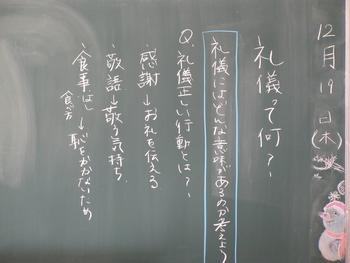 12月19日(木)
礼儀って何?
礼儀にはどんな意味があるのか考えよう
Q.礼儀正しい行動とは?
・感謝→お礼を伝える
・敬語→敬う気持ち
・食事はし→恥をかかないため
食べ方